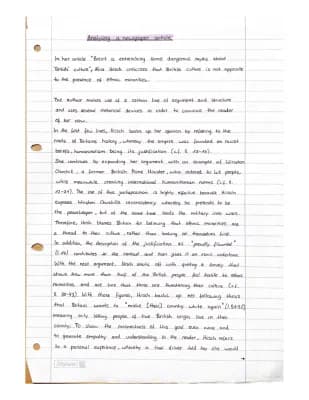 Analysing a newspaper article
In her article "Brexit is entrenching some dangerous myths about
'British' culture", Afua Hirsch criticises that British culture is not opposite
to the presence of ethnic minorities.
The author makes use of a certain line of argument and structure
and uses several rhetorical devices in order to convince the reader
of her view.
In the first few lines, Hirsch backs up her opinion by referring to the
roots of Britains history, whereby the empire was founded on racist
beliefs, humanitarianism being its justification (cf. l.
She continues by expanding her argument with an example of Winston
Churchill, a former British Prime Minister, who ordered to kill people,
while meanwhile creating international humanitarian norms (cf. l.
The use of this juxtaposition is highly effective because Hirsch
exposes Winston Churchills inconsistency whereby he pretends to be
the peacekeeper, but at the same time leads the military into wars.
Therefore, Hirsh blames Britain for believing that ethnic minorities are
a threat to their culture rather than looking at themselves first.
In addition, the description of the justification as "proudly flaunted"
contributes to the contrast and then gives it an ironic undertone.
With the next argument, Hirsh starts off with quoting a survey that
shows how more than half of the British people feel hostile to ethnic
minorities, and not less than three are threatening their culture (cf.
With these figures, Hirsch backs up her following thesis
that Britain wants to "make [their] country white again"
meaning only letting people of true British origin live in their
country. To show the incorrectness of this goal even more and
to generate empathy and understanding in the reader, Hirsch refers
to a personal experience, whereby a taxi driver told her she would